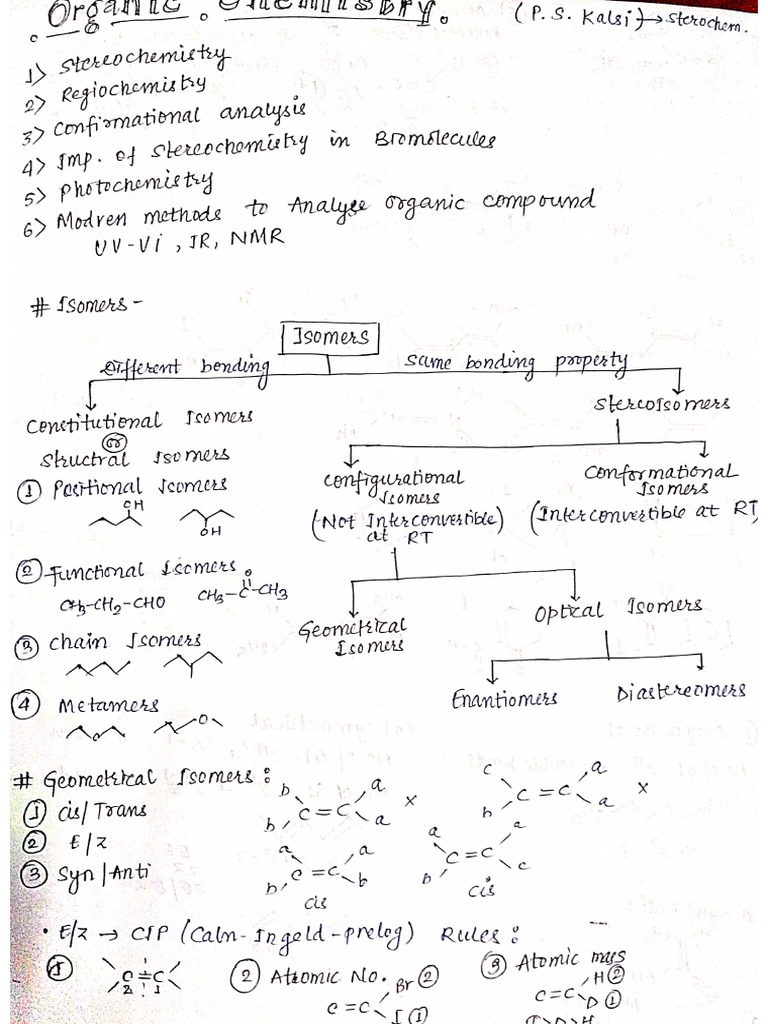 Organic . Chemistry.
(P. S. Kalsi) → Sterochem.
1> Stereochemistry
2> Regiochemistry
3> Confirmational analysis
4> Imp. of Stereochemistry in Bromolecules
5> Photochemistry
6> Modren methods to Analyse organic compound
UV-Vi, IR, NMR
# Isomers -
Isomers
Different bonding
Same bonding property
Constitutional Isomers
or
Structral Isomers
Stereoisomers
① Positional Isomers
OH
OH
Configurational
Isomers
(Not Interconvertible)
at RT
Conformational
Isomers
(Interconvertible at RT
② Functional Isomers
CH3-CH2-CHO
O
CH3-C-CH3
Geometrical
Isomers
Optical Isomers
③ Chain Isomers
Enantiomers
Diastereomers
④ Metamers
O
O
# Geometrical Isomers :
① Cis/Trans
② E/Z
③ Syn/Anti
b a
C=C
b a
x
c a
C=C
b a
x
a a
C=C
b b
cis
a a
C=C
b c
cis
• E/Z → CIP (Caln-Ingeld-prelog) Rules :
①
C=C
2 1
② Atromic No.
Br ②
C=C
I ①
③ Atomic mass
H ②
C=C
D ①